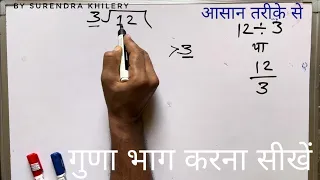 BY SURENDRA KHILERY
आसान तरीक़े से
3√12
12÷3
>3
या
12
3
गुणा भाग करना सीखें